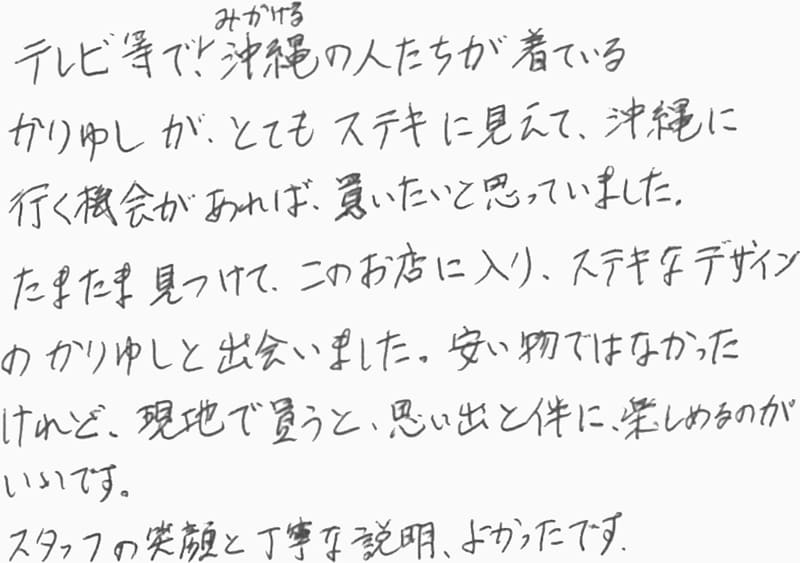 みかける
テレビ等で、沖縄の人たちが着ている
かりゆしが、とてもステキに見えて、沖縄に
行く機会があれば、買いたいと思っていました。
たまたま見つけて、このお店に入り、ステキなデザイン
のかりゆしと出会いました。安い物ではなかった
けれど、現地で買うと、思い出と件に、楽しめるのが
いいです。
スタッフの笑顔と丁寧な説明、よかったです.